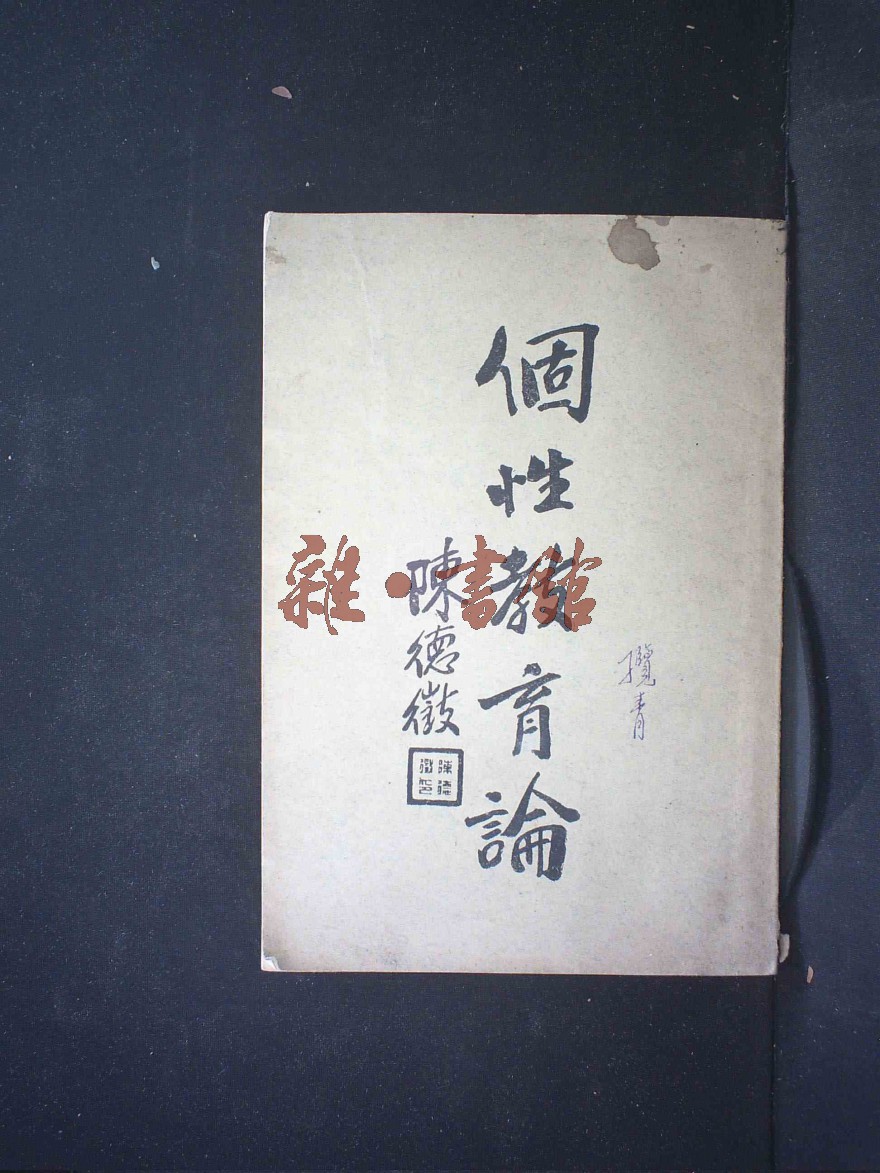 個性教育論
陳德徵
陳德徵印
攬青
雜·書館